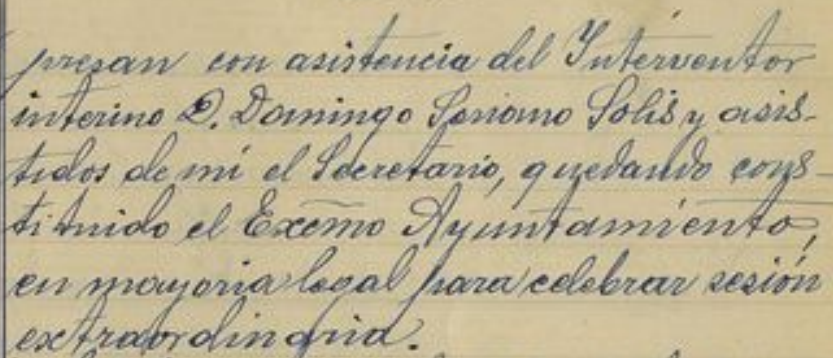 presan con asistencia del Interventor
interino D. Domingo Soriano Solis y asis-
tidos de mi el Secretario, quedando cons-
tituido el Excmo Ayuntamiento,
en mayoria legal para celebrar sesión
extraordinaria.